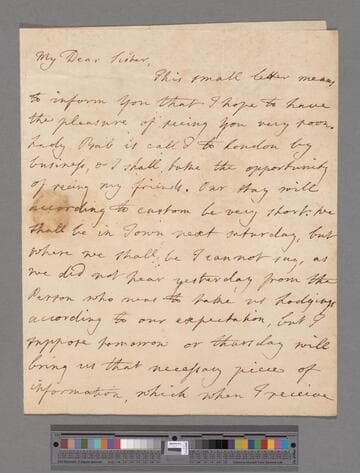 My Dear Sister,
This small letter means
to inform you that I hope to have
the pleasure of seeing you very soon.
Lady Bab is call'd to London by
business, & I shall take the opportunity
of seeing my friends. Our stay will
according to custom be very short: we
shall be in Town next saturday, but
where we shall be I cannot say, as
we did not hear yesterday from the
Person who was to take us Lodgings
according to our expectation, but I
suppose tomorrow or thursday will
bring us that necessary piece of
information, which when I receive